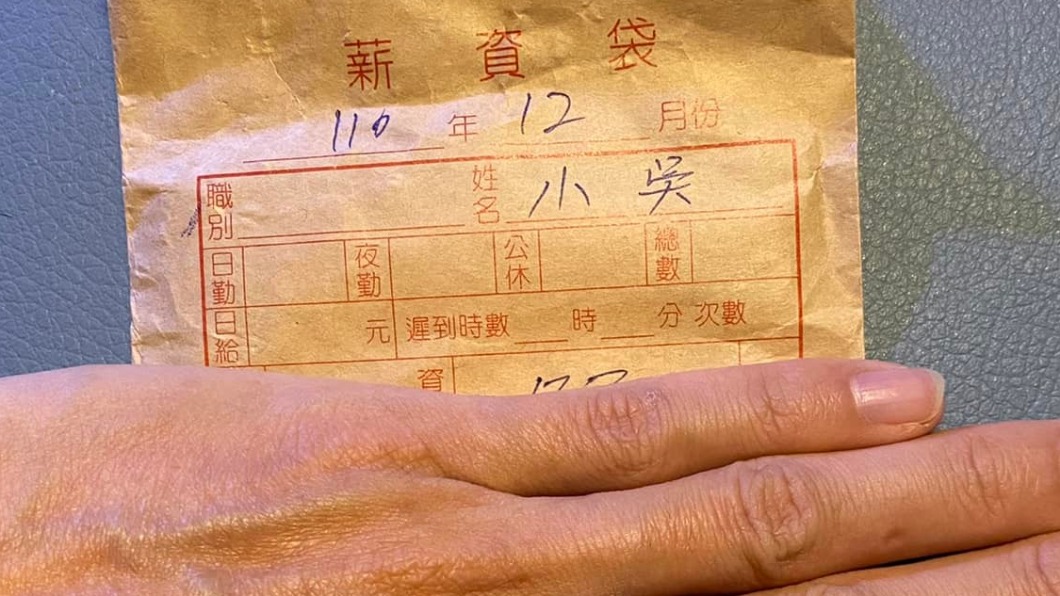 薪資袋
110年12月份
職別 姓名 小吳
日勤 夜勤 公休 總數
日給 元 遲到時數 時 分 次數
資